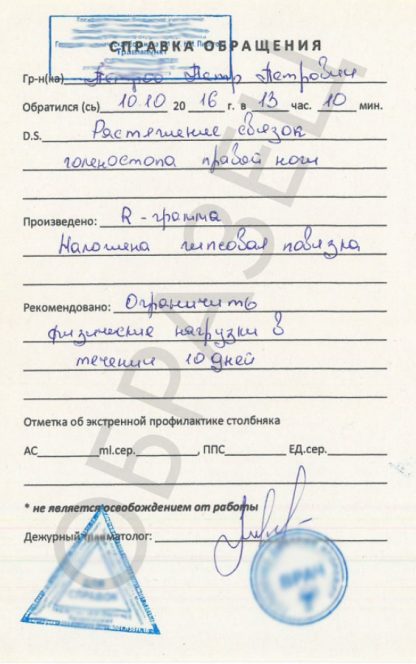 СПРАВКА ОБРАЩЕНИЯ
Гр-н(ка) Петров Петр Петрович
Обратился (сь) 10.10 20 16 г. в 13 час. 10 мин.
D.S. Растяжение связок
голеностопа правой ноги
Произведено: R-грамма
Наложена гипсовая повязка
Рекомендовано: Ограничить
физические нагрузки в
течении 10 дней
Отметка об экстренной профилактике столбняка
АС ml.сер. , ППС ЕД.сер.
* не является освобождением от работы
Дежурный травматолог:
СПРАВОК
ВРАЧ
ОБРАЗЕЦ